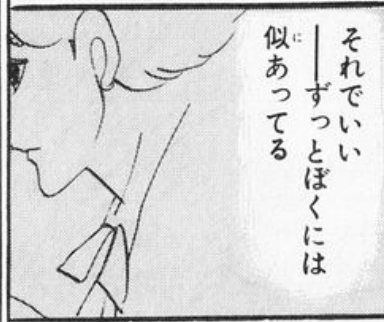 それでいい
――ずっとぼくには
似あってる